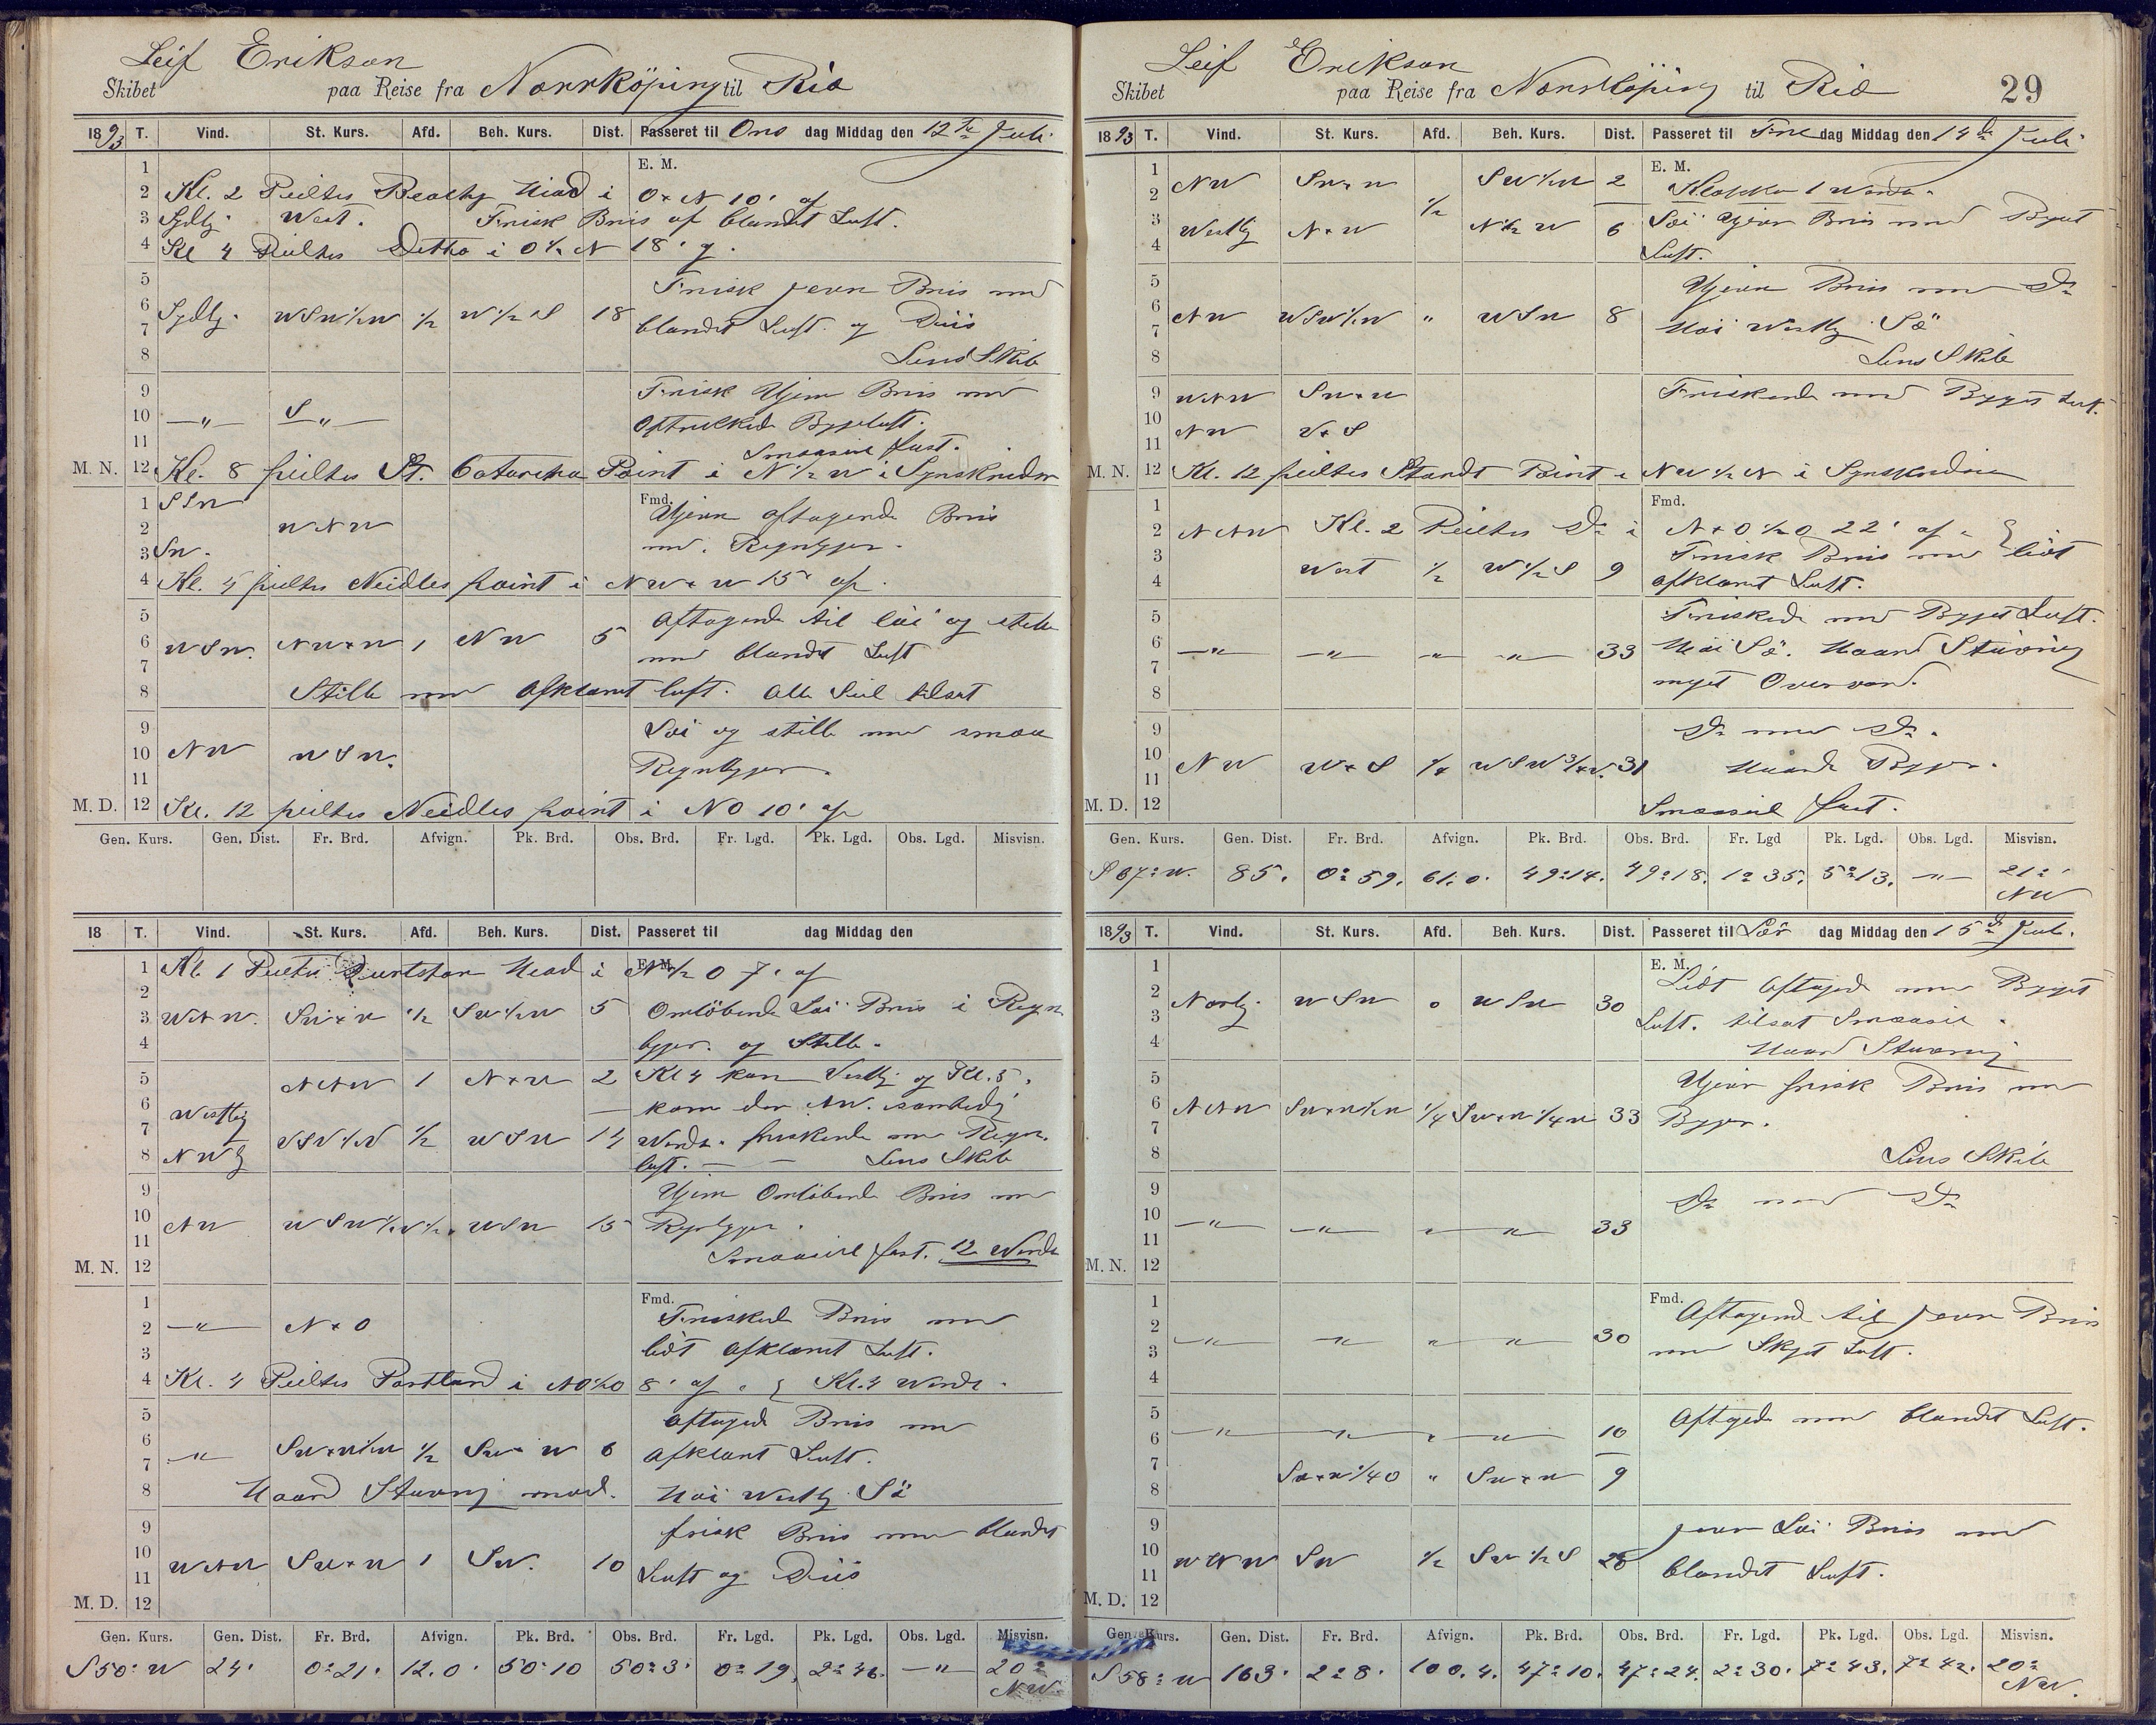 Leif Erikson
Skibet paa Reise fra Norrköping til Rio
1893 T. Vind. St. Kurs. Afd. Beh. Kurs. Dist. Passeret til Ons dag Middag den 12te Juli.
E. M.
1
2 Kl. 2 Peiltes Beachy Head i O x N 10' af
3 Sydlig. West. Frisk Bris af blandet Luft.
4 Kl 4 Peiltes Ditto i O ½ N 18'
5 Frisk jevn Bris med
6 Sydlig. WSW½W ½ W½S 18
7 blandet Luft og Diis
8 Lens Skib
9 Frisk Ujevn Bris med
10 —"— S —"—
Optrukked Bygeluft.
11 Smaaseil fast.
M. N. 12 Kl. 8 peiltes St. Catarina Point i N½W i Synskredsen
1 SSW Fmd. Ujevn aftagende Bris
2 WNW
3 SW. med Regnbyger.
4 Kl. 4 peiltes Neidles point i NWxW 15' af.
5 Aftagende til löi og stille
6 WSW. NWxW 1 NW 5
7 med blandet Luft
8 Stille med afklaret luft. Alle Seil tilsat
9 Löi og stille med smaa
10 NW WSW.
11 Regnbyger.
M. D. 12 Kl. 12 peiltes Neidles point i NO 10' af
Gen. Kurs. Gen. Dist. Fr. Brd. Afvign. Pk. Brd. Obs. Brd. Fr. Lgd. Pk. Lgd. Obs. Lgd. Misvisn.
18 T. Vind. St. Kurs. Afd. Beh. Kurs. Dist. Passeret til dag Middag den
E. M.
1 Kl. 1 Peiltes Head i N½O 7' af
2
3 WNW. SWxW ½ SW½W 5 Omlöbende Löi Bris i Regn
4 byger. og Stille.
5 NNW 1 NxW 2 Kl 4 kom Vestlig og Kl. 5.
6 Westlig kom der NW.
7 WSW½W ½ WSW 14 Vendte. friskende med Regn
8 NW luft. Lens Skib
9 Ujevn Omlöbende Bris med
10 NW WSW½W ½ WSW 15 Regnbyger.
11 Smaaseil fast. 12 Vendte
M. N. 12
1 Fmd. Friskende Bris med
2 —"— NxO
3 lidt afklaret Luft.
4 Kl. 4 Peiltes Portland i NO½O 8' af. Kl. 4 Vendte.
5 Aftagede Bris med
6 —"— SWxW½W ½ SWxW 6
7 afklaret Luft.
8 Haard Stuvning mod. Höi Westlig Sö
9 frisk Bris med blandet
10 WNW SWxW 1 SW. 10
11 Luft og Diis
M. D. 12
Gen. Kurs. Gen. Dist. Fr. Brd. Afvign. Pk. Brd. Obs. Brd. Fr. Lgd. Pk. Lgd. Obs. Lgd. Misvisn.
S 50° W 24' 0°21' 12.0' 50°10 50°3' 0°19 2°46. —"— 20° NW.
Leif Erikson
Skibet paa Reise fra Norrköping til Rio 29
1893 T. Vind. St. Kurs. Afd. Beh. Kurs. Dist. Passeret til Fre dag Middag den 14de Juli
E. M.
1
2 NW SWxW ½ SW½W 2 Klokken 1 Vendte.
3 Westlig NxW N½W 6 Löi Ujevn Bris med Byget
4 Luft.
5 Ujevn Bris med Do
6 NW WSW½W " WSW 8
7 Höi Westlig Sö
8 Lens Skib
9 WNW SWxW Friskende med Byget Luft.
10
11 NW WxS
M. N. 12 Kl. 12 peiltes Standt Point i NW½N i Synskredsen
1 Fmd.
2 NNW Kl. 2 Peiltes Do i NxO½O 22' af.
3 Frisk Bris med lidt
4 West ½ W½S 9 afklaret Luft.
5 Friskede med Byget Luft.
6 —"— —"— —"— —"— 33 Höi Sö. Haard Stuvning
7 meget Overvand.
8
9 Do med Do.
10 NW WxS ¼ WSW¾W. 31
11 Haarde Byger.
M. D. 12 Smaaseil fast.
Gen. Kurs. Gen. Dist. Fr. Brd. Afvign. Pk. Brd. Obs. Brd. Fr. Lgd Pk. Lgd. Obs. Lgd. Misvisn.
S 67° W. 85. 0°59. 61.0. 49°14. 49°18. 1°35. 5°13. —"— 21° NW
1893 T. Vind. St. Kurs. Afd. Beh. Kurs. Dist. Passeret til Lör dag Middag den 15de Juli.
E. M.
1 Lidt Aftagede med Byget
2 Nordlig. WSW o WSW 30
3 Luft. tilsat Smaaseil.
4 Haard Stuvning
5 Ujevn frisk Bris med
6 NNW SWxW½W ¼ SWxW¼W 33 Byger.
7
8 Lens Skib
9 Do med Do
10 —"— —"— " —"— 33
11
M. N. 12
1 Fmd. Aftagende til jevn Bris
2 —"— —"— " —"— 30
3 med Skyet Luft.
4
5 Aftagede med blandet Luft.
6 —"— —"— " —"— 10
7 SWxW¼O " SWxW 9
8
9 jevn Löi Bris med
10 WNW SW ½ SW½S 28
11 blandet Luft.
M. D. 12
Gen. Kurs. Gen. Dist. Fr. Brd. Afvign. Pk. Brd. Obs. Brd. Fr. Lgd. Pk. Lgd. Obs. Lgd. Misvisn.
S 58° W 163. 2°8. 100.4. 47°10. 47°24. 2°30. 7°43. 7°42. 20° NW.